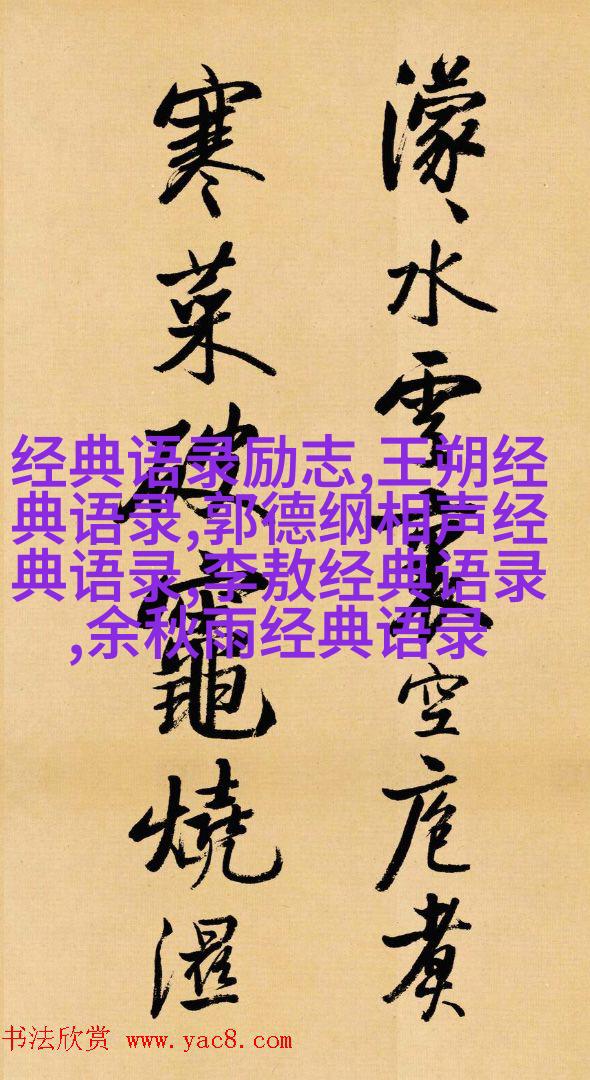 濛、水雲裏空庖煮
寒菜破竈燒濕
经典语录励志,王朔经
典语录,郭德纲相声经
典语录,李敖经典语录
,余秋雨经典语录
书法欣赏 www.yac8.com